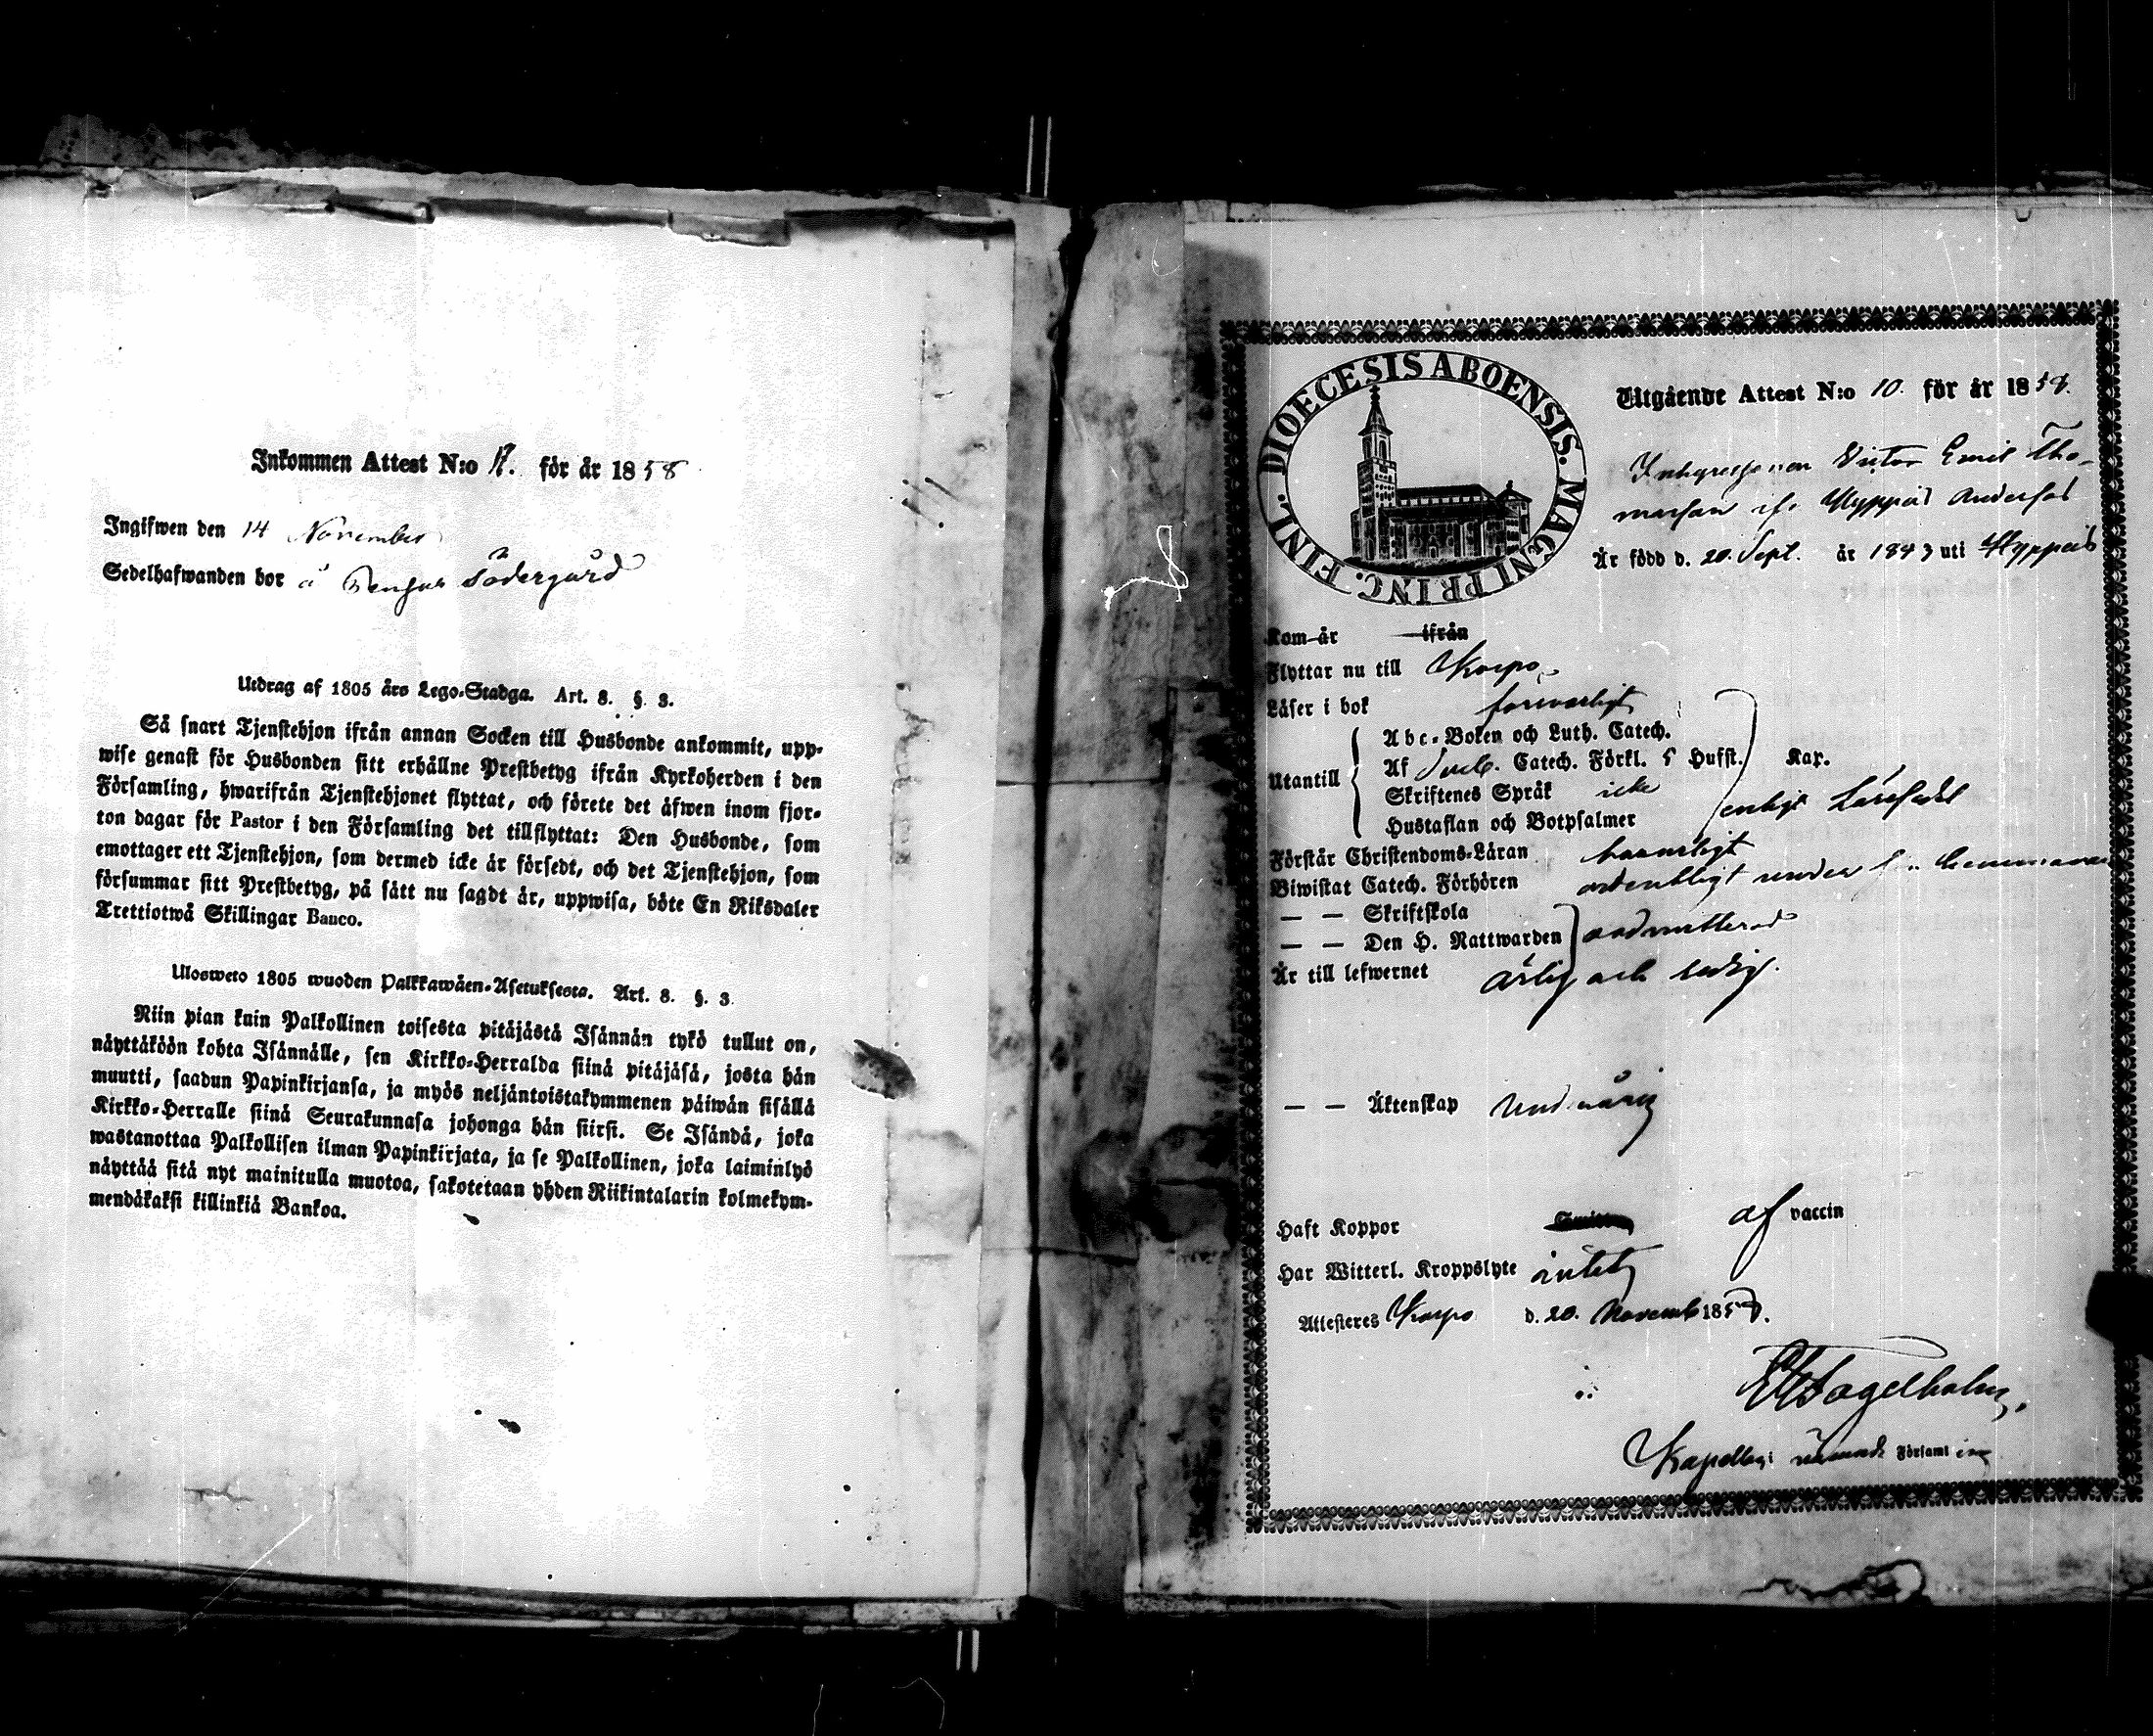 Inkommen Attest N:o 17. för år 1858
Ingifwen den 14 November
Sedelhafwanden bor å Södergård
Utdrag af 1805 års Lego-Stadga. Art. 8. §. 3.
Så snart Tjenstehjon ifrån annan Socken till Husbonde ankommit, upp-
wise genast för Husbonden sitt erhållne Prestbetyg ifrån Kyrkoherden i den
Församling, hwarifrån Tjenstehjonet flyttat, och förete det äfwen inom fjor-
ton dagar för Pastor i den Församling det tillflyttat: Den Husbonde, som
emottager ett Tjenstehjon, som dermed icke är försedt, och det Tjenstehjon, som
försummar sitt Prestbetyg, på sätt nu sagdt är, uppwisa, böte En Riksdaler
Trettiotwå Skillingar Banco.
Ulosweto 1805 wuoden Palkkawäen-Asetuksesta. Art. 8. §. 3.
Niin pian kuin Palkollinen toisesta pitäjästä Isännän tykö tullut on,
näyttäköön kohta Isännälle, sen Kirkko-Herralda siinä pitäjäsä, josta hän
muutti, saadun Papinkirjansa, ja myös neljäntoistakymmenen päiwän sisällä
Kirkko-Herralle siinä Seurakunnasa johonga hän siirsi. Se Isändä, joka
wastanottaa Palkollisen ilman Papinkirjata, ja se Palkollinen, joka laiminlyö
näyttää sitä nyt mainitulla muotoa, sakotetaan yhden Riikintalarin kolmekym-
mendäkaksi killinkiä Bankoa.
DIOECESIS ABOENSIS. MAGNI PRINC. FINL.
Utgående Attest N:o 10. för år 1858.
Victor Emil Tho-
masson Hyppeis Anders
Är född d. 20. Sept. år 1843 uti Hyppeis
Kom år ifrån
Flyttar nu till Korpo
Läser i bok försvarligt
Utantill
Abc-Boken och Luth. Catech.
Af Sveb. Catech. Förkl. 5 Hufst. Kap.
Skriftenes Språk icke
Hustaflan och Botpsalmer enligt Läsesedel
Förstår Christendoms-Läran
Biwistat Catech. Förhören ordentligt under
— — Skriftskola
— — Den H. Nattwarden oadmitterad
Är till lefwernet ärlig och ledig.
— — Äktenskap
Haft Koppor af vaccin
Har Witterl. Kroppslyte intet
Attesteres Korpo d. 20. Novemb 1858.
Församl